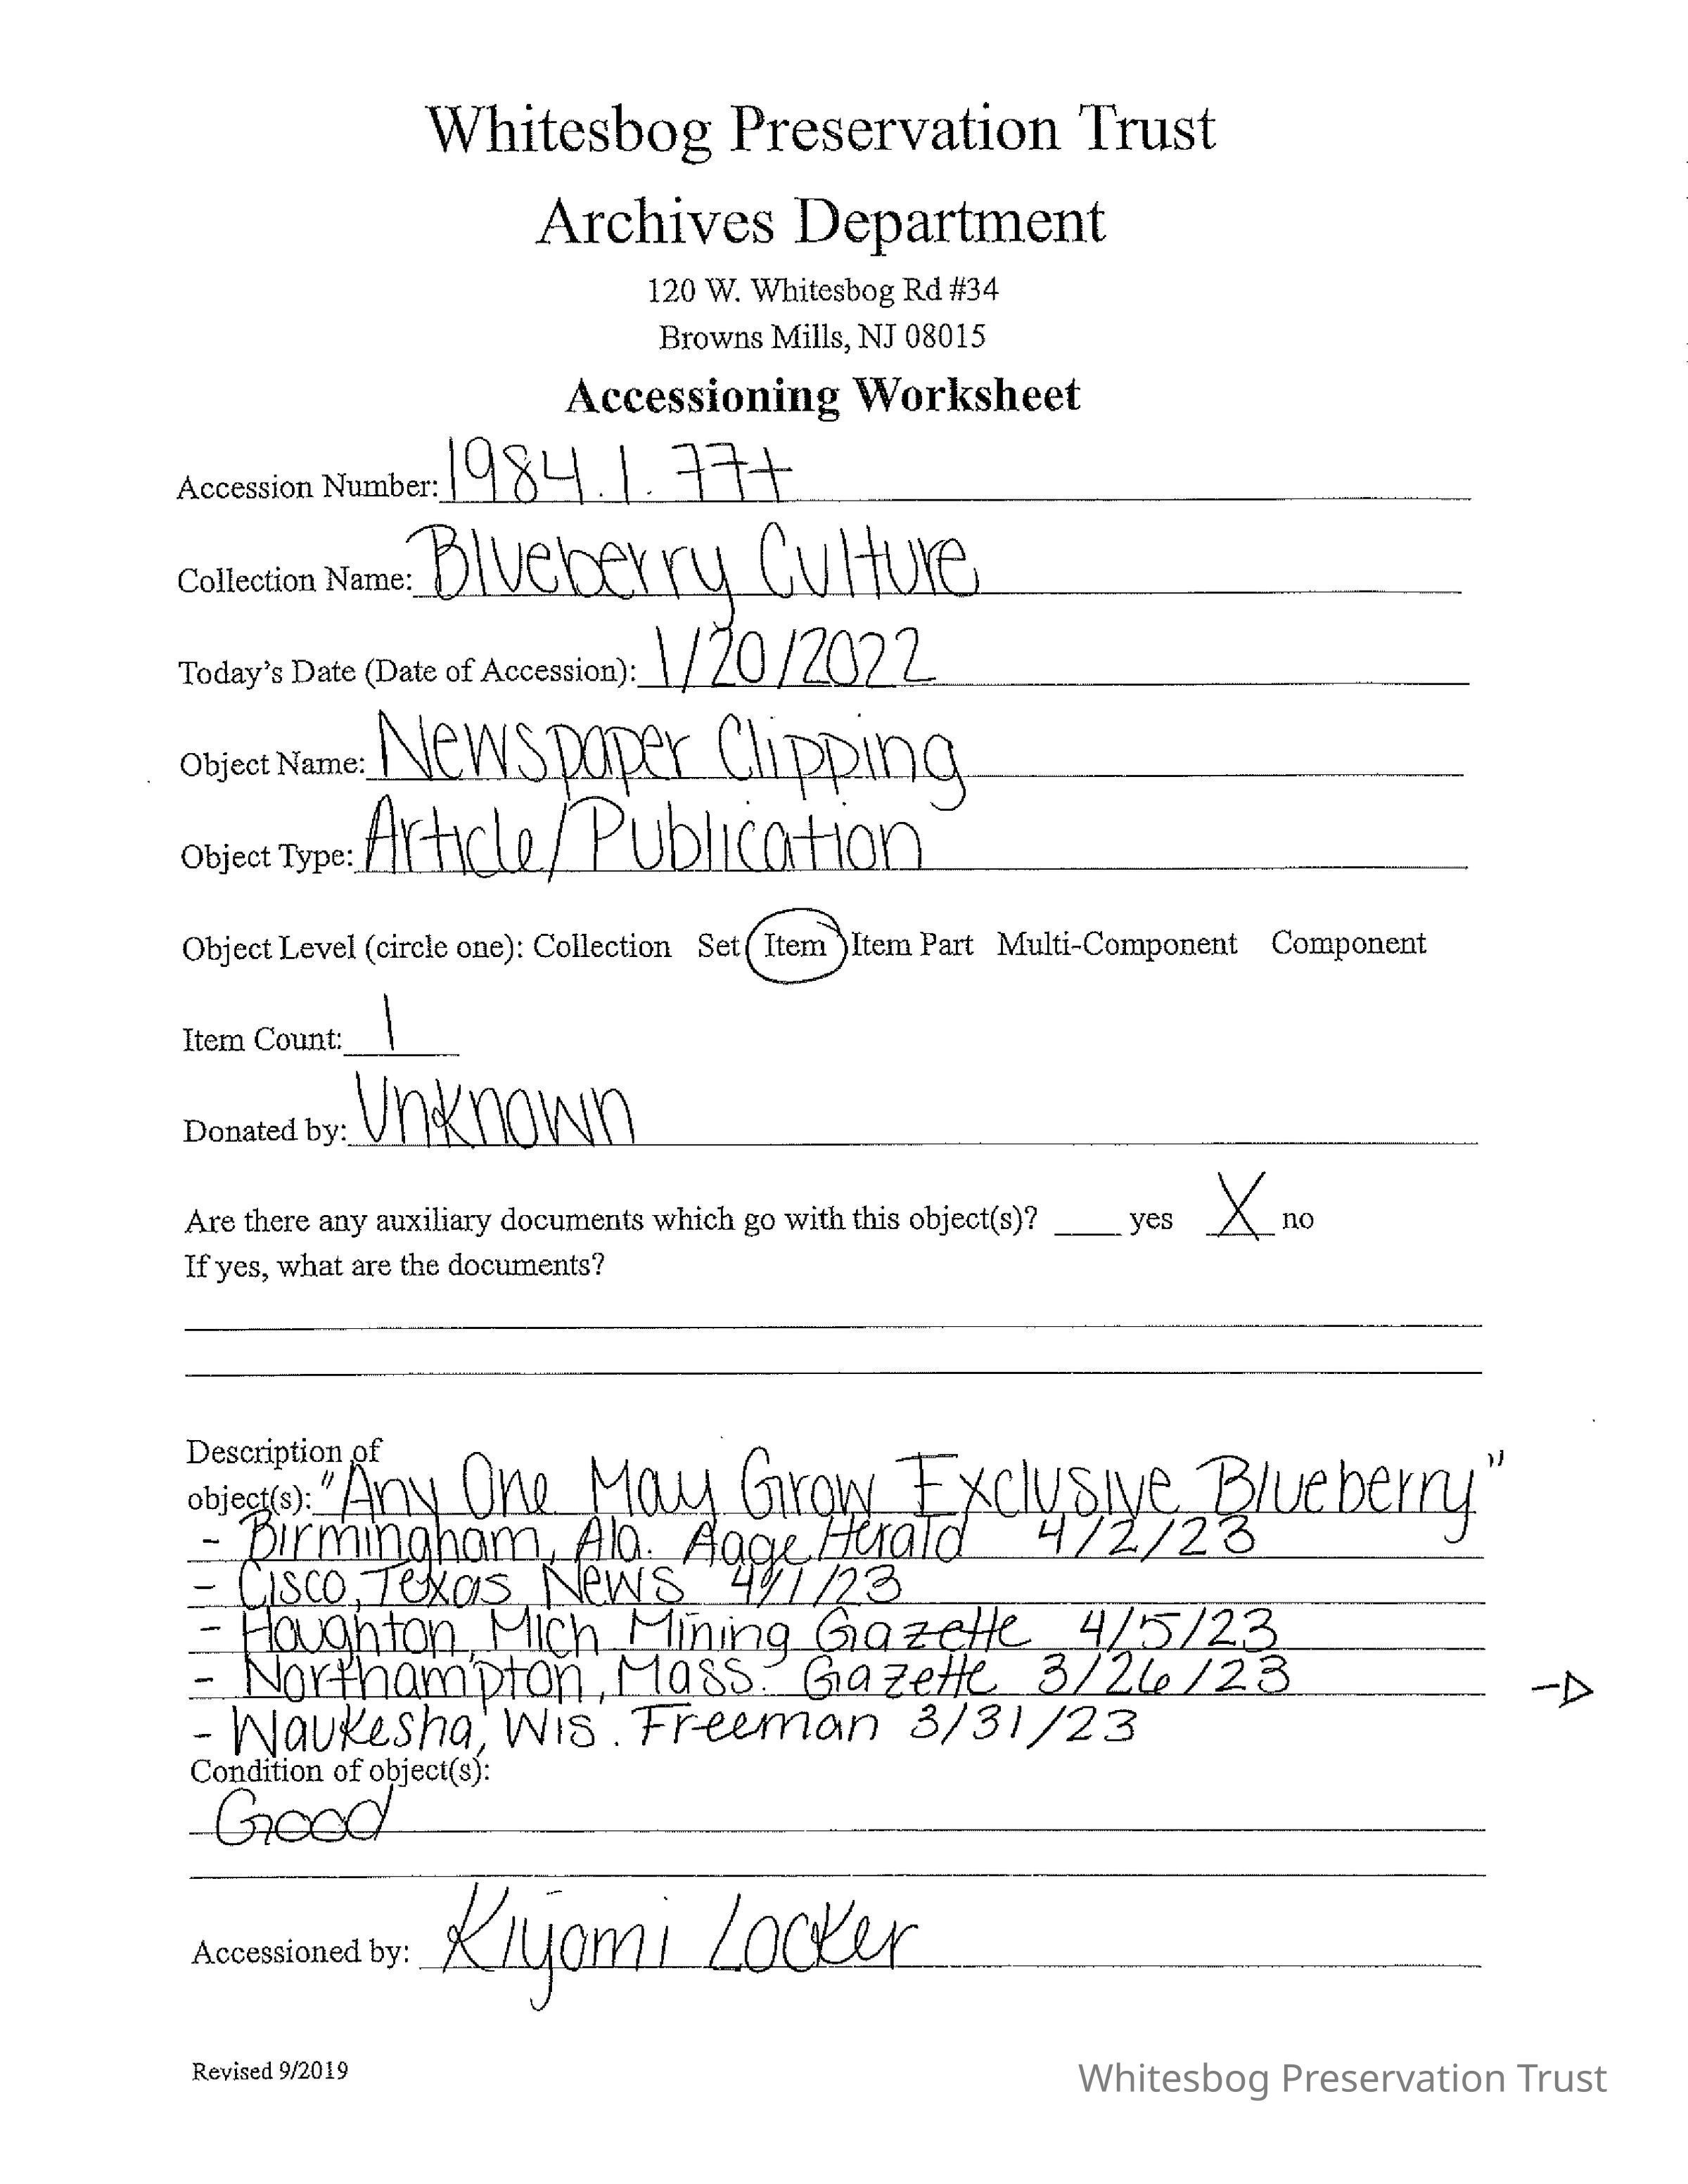 Whitesbog Preservation Trust
Archives Department
120 W. Whitesbog Rd #34
Browns Mills, NJ 08015
Accessioning Worksheet
Accession Number: 1984.1.77+
Collection Name: Blueberry Culture
Today's Date (Date of Accession): 1/20/2022
Object Name: Newspaper Clipping
Object Type: Article/Publication
Object Level (circle one): Collection Set Item Item Part Multi-Component Component
Item Count: 1
Donated by: Unknown
Are there any auxiliary documents which go with this object(s)? ____ yes X no
If yes, what are the documents?
Description of
object(s): "Any One May Grow Exclusive Blueberry"
- Birmingham, Ala. Aage Herald 4/2/23
- Cisco, Texas News 4/1/23
- Houghton, Mich Mining Gazette 4/5/23
- Northampton, Mass. Gazette 3/26/23
- Waukesha, Wis. Freeman 3/31/23
Condition of object(s):
Good
Accessioned by: Kiyomi Locker
Revised 9/2019
Whitesbog Preservation Trust